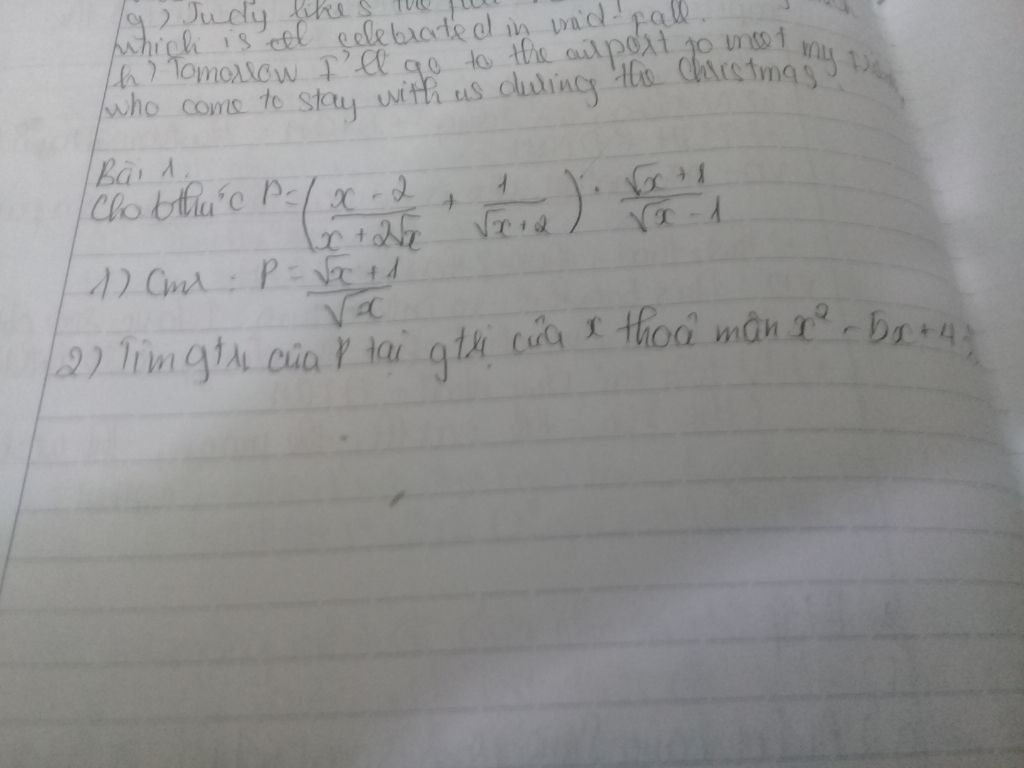 g) Judy likes the
which is celebrated in mid-fall.
h) Tomorrow I'll go to the airport to meet my
who come to stay with us during the Christmas
Bài 1.
Cho bthức P = (x - 2 / x + 2√x + 1 / √x + 2) . √x + 1 / √x - 1
1) Cmr : P = √x + 1 / √x
2) Tìm gtrị của P tại gtrị của x thoả mãn x² - 5x + 4